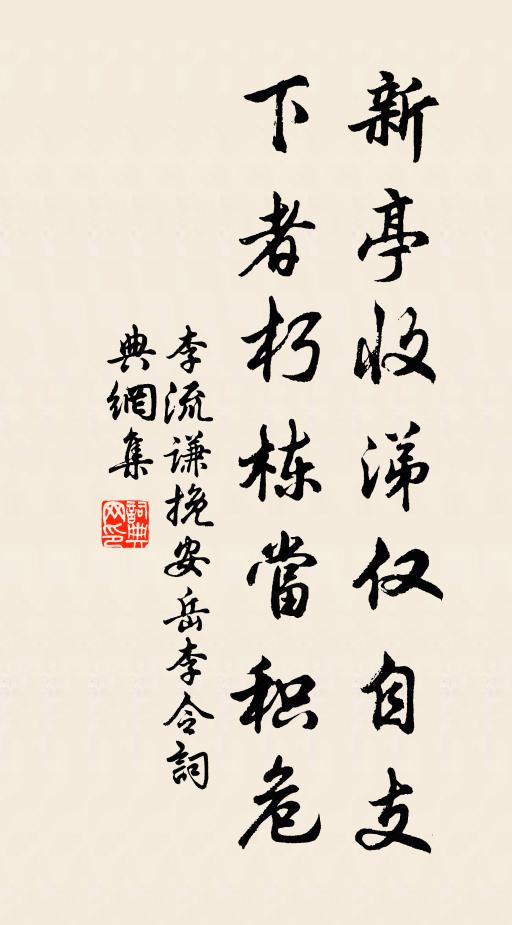 新亭收涕仅自支
下者朽栋當积危
李流谦挽安岳李令詞
典網集
詞典网印